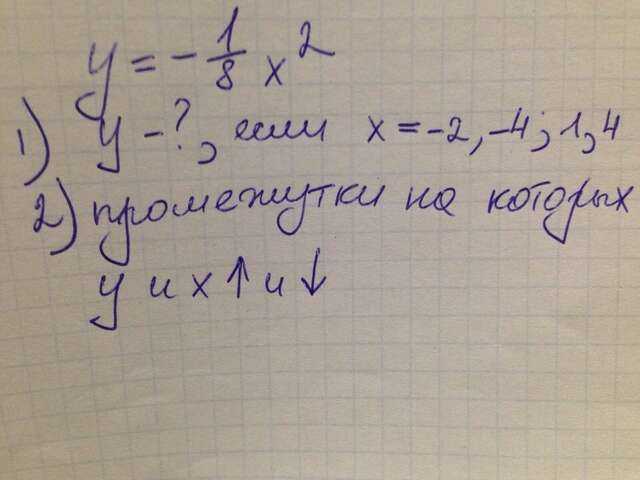 y = -1/8 x²
1) y - ?, если x = -2, -4; 1, 4
2) промежутки на которых
y и x ↑ и ↓